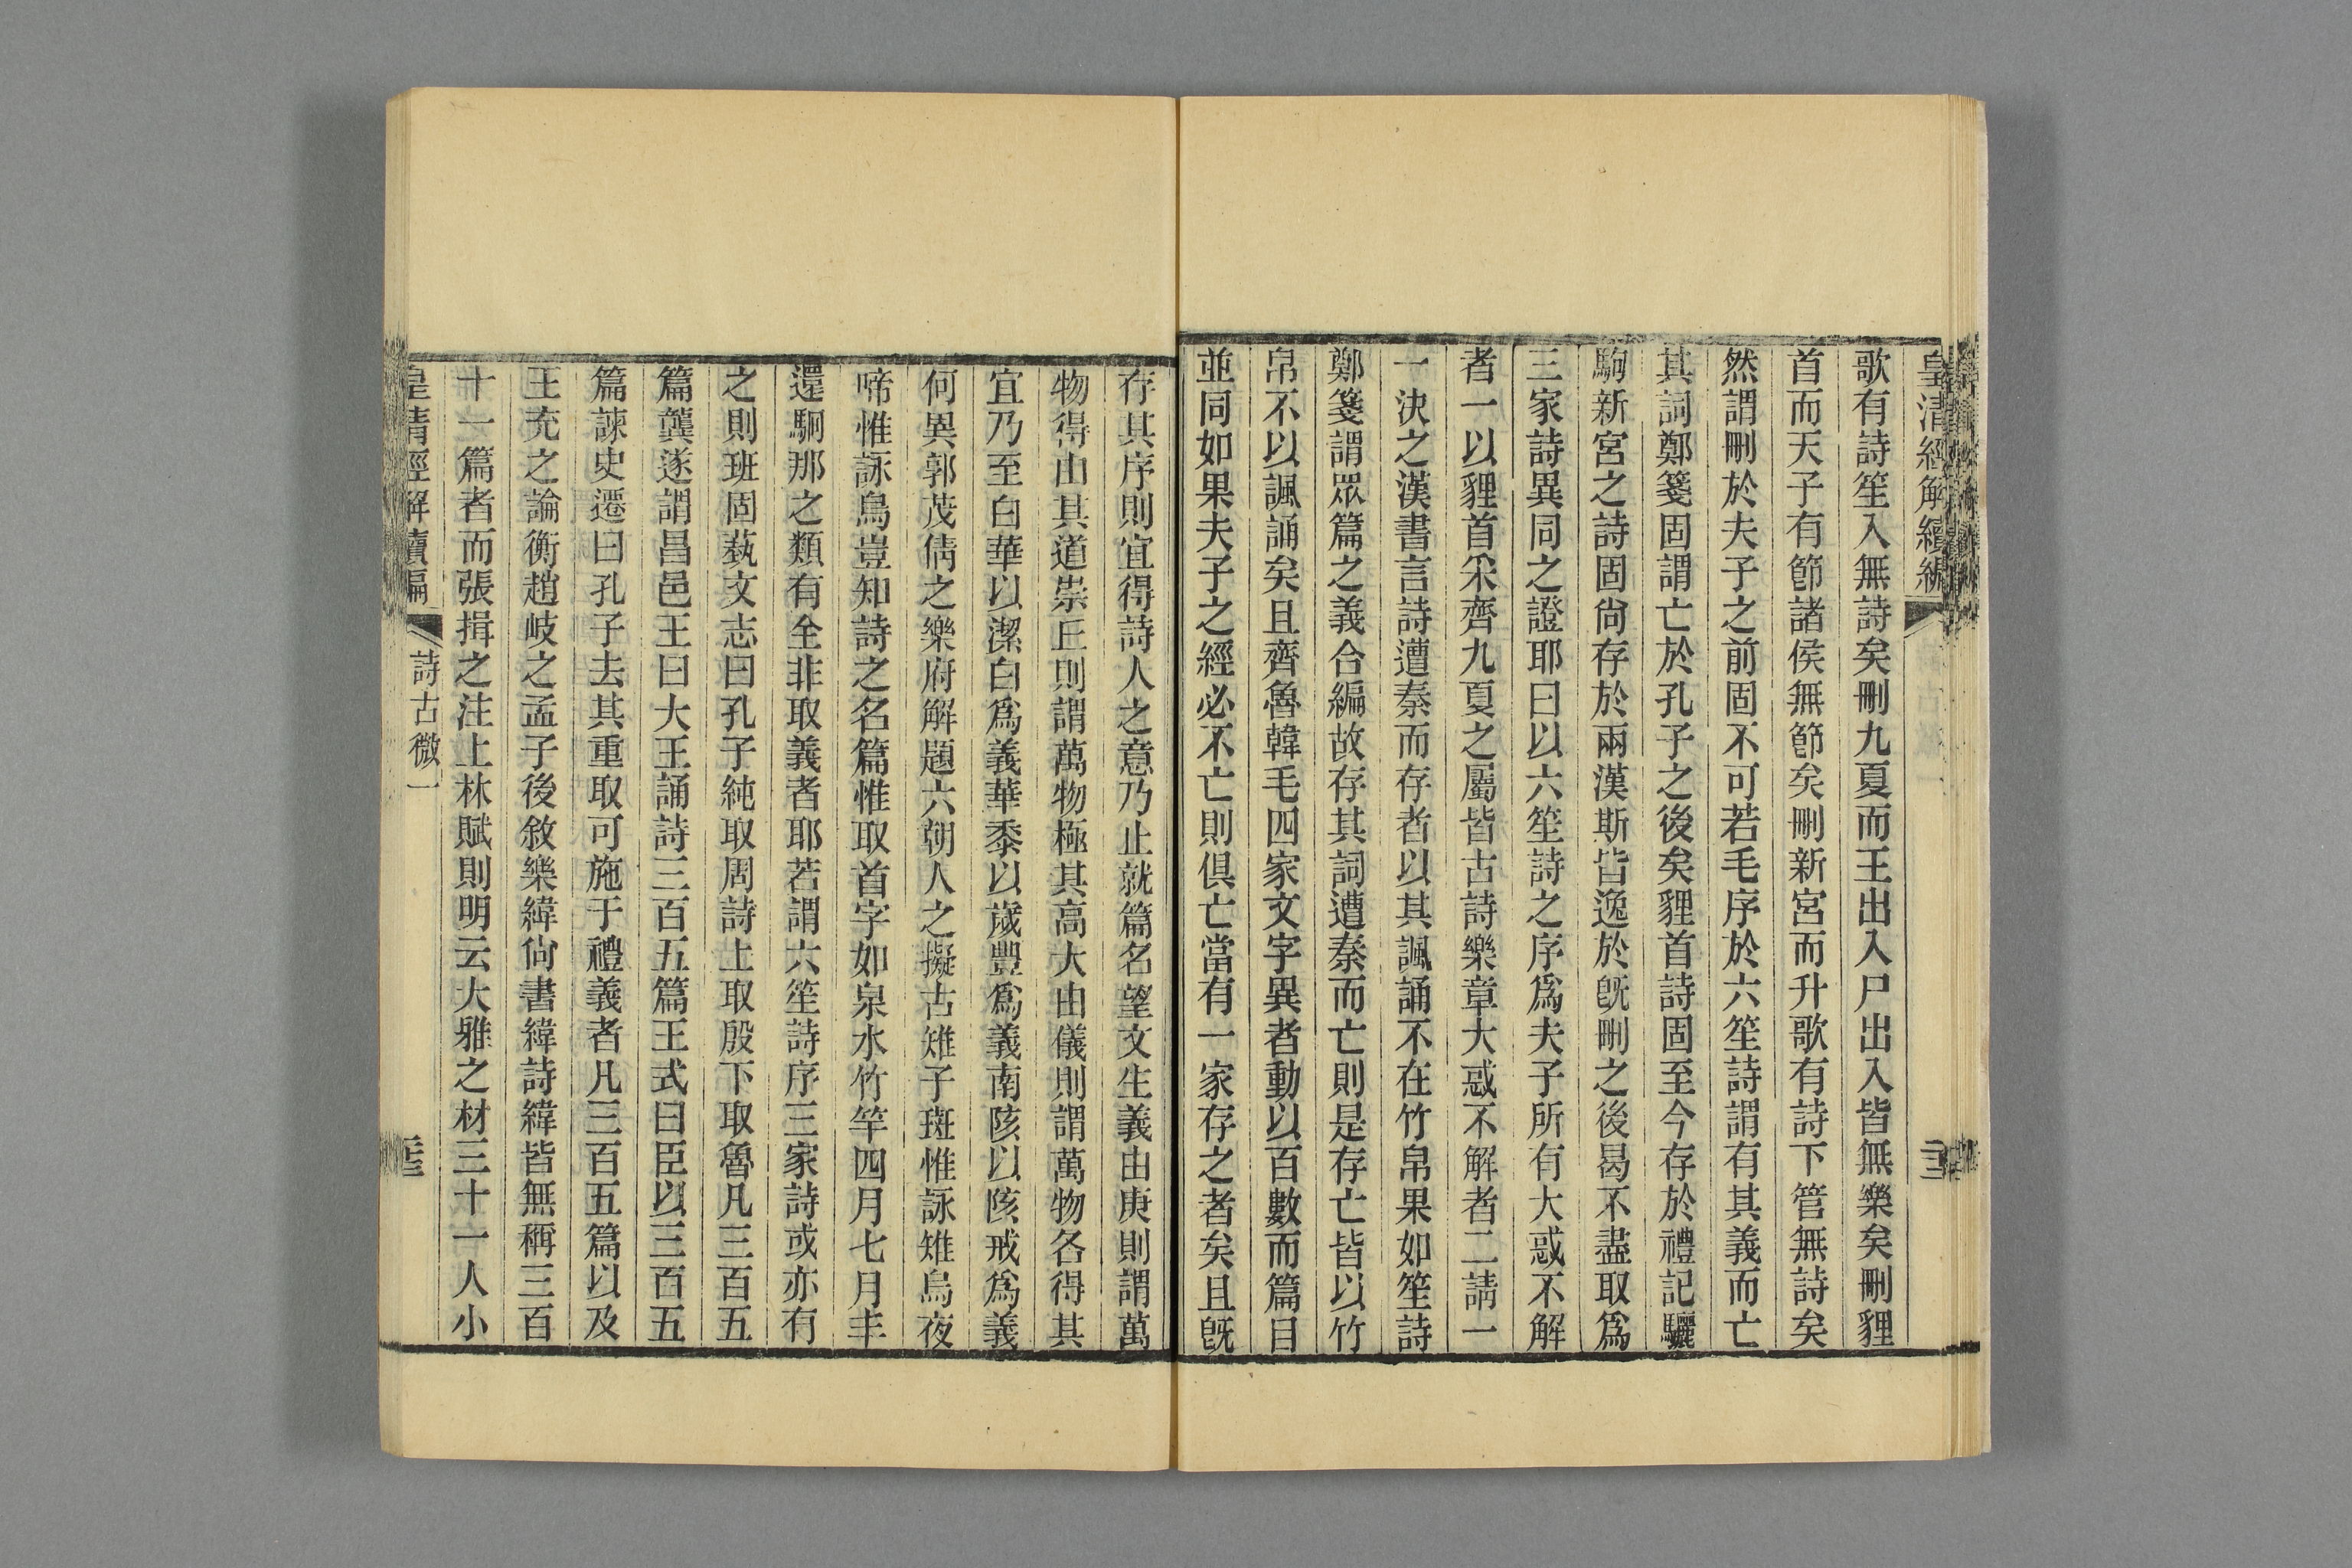 皇清經解續編
歌有詩笙入無詩矣刪九夏而王出入尸出入皆無樂矣刪貍
首而天子有節諸侯無節矣刪新宮而升歌有詩下管無詩矣
然謂刪於夫子之前固不可若毛序於六笙詩謂有其義而亡
其詞鄭箋固謂亡於孔子之後矣貍首詩固至今存於禮記驪
駒新宮之詩固尙存於兩漢斯皆逸於旣刪之後曷不盡取爲
三家詩異同之證耶曰以六笙詩之序爲夫子所有大惑不解
者一以貍首采齊九夏之屬皆古詩樂章大惑不解者二請一
一決之漢書言詩遭秦而存者以其諷誦不在竹帛果如笙詩
鄭箋謂眾篇之義合編故存其詞遭秦而亡則是存亡皆以竹
帛不以諷誦矣且齊魯韓毛四家文字異者動以百數而篇目
並同如果夫子之經必不亡則俱亡當有一家存之者矣且旣
存其序則宜得詩人之意乃止就篇名望文生義由庚則謂萬
物得由其道崇丘則謂萬物極其高大由儀則謂萬物各得其
宜乃至白華以潔白爲義華黍以歲豐爲義南陔以陔戒爲義
何異郭茂倩之樂府解題六朝人之擬古雉子斑惟詠雉烏夜
啼惟詠烏豈知詩之名篇惟取首字如泉水竹竿四月七月丰
還駉那之類有全非取義者耶若謂六笙詩序三家詩或亦有
之則班固藝文志曰孔子純取周詩上取殷下取魯凡三百五
篇龔遂謂昌邑王曰大王誦詩三百五篇王式曰臣以三百五
篇諫史遷曰孔子去其重取可施于禮義者凡三百五篇以及
王充之論衡趙岐之孟子後敘樂緯尙書緯詩緯皆無稱三百
十一篇者而張揖之注上林賦則明云大雅之材三十一人小
皇清經解續編
詩古微一